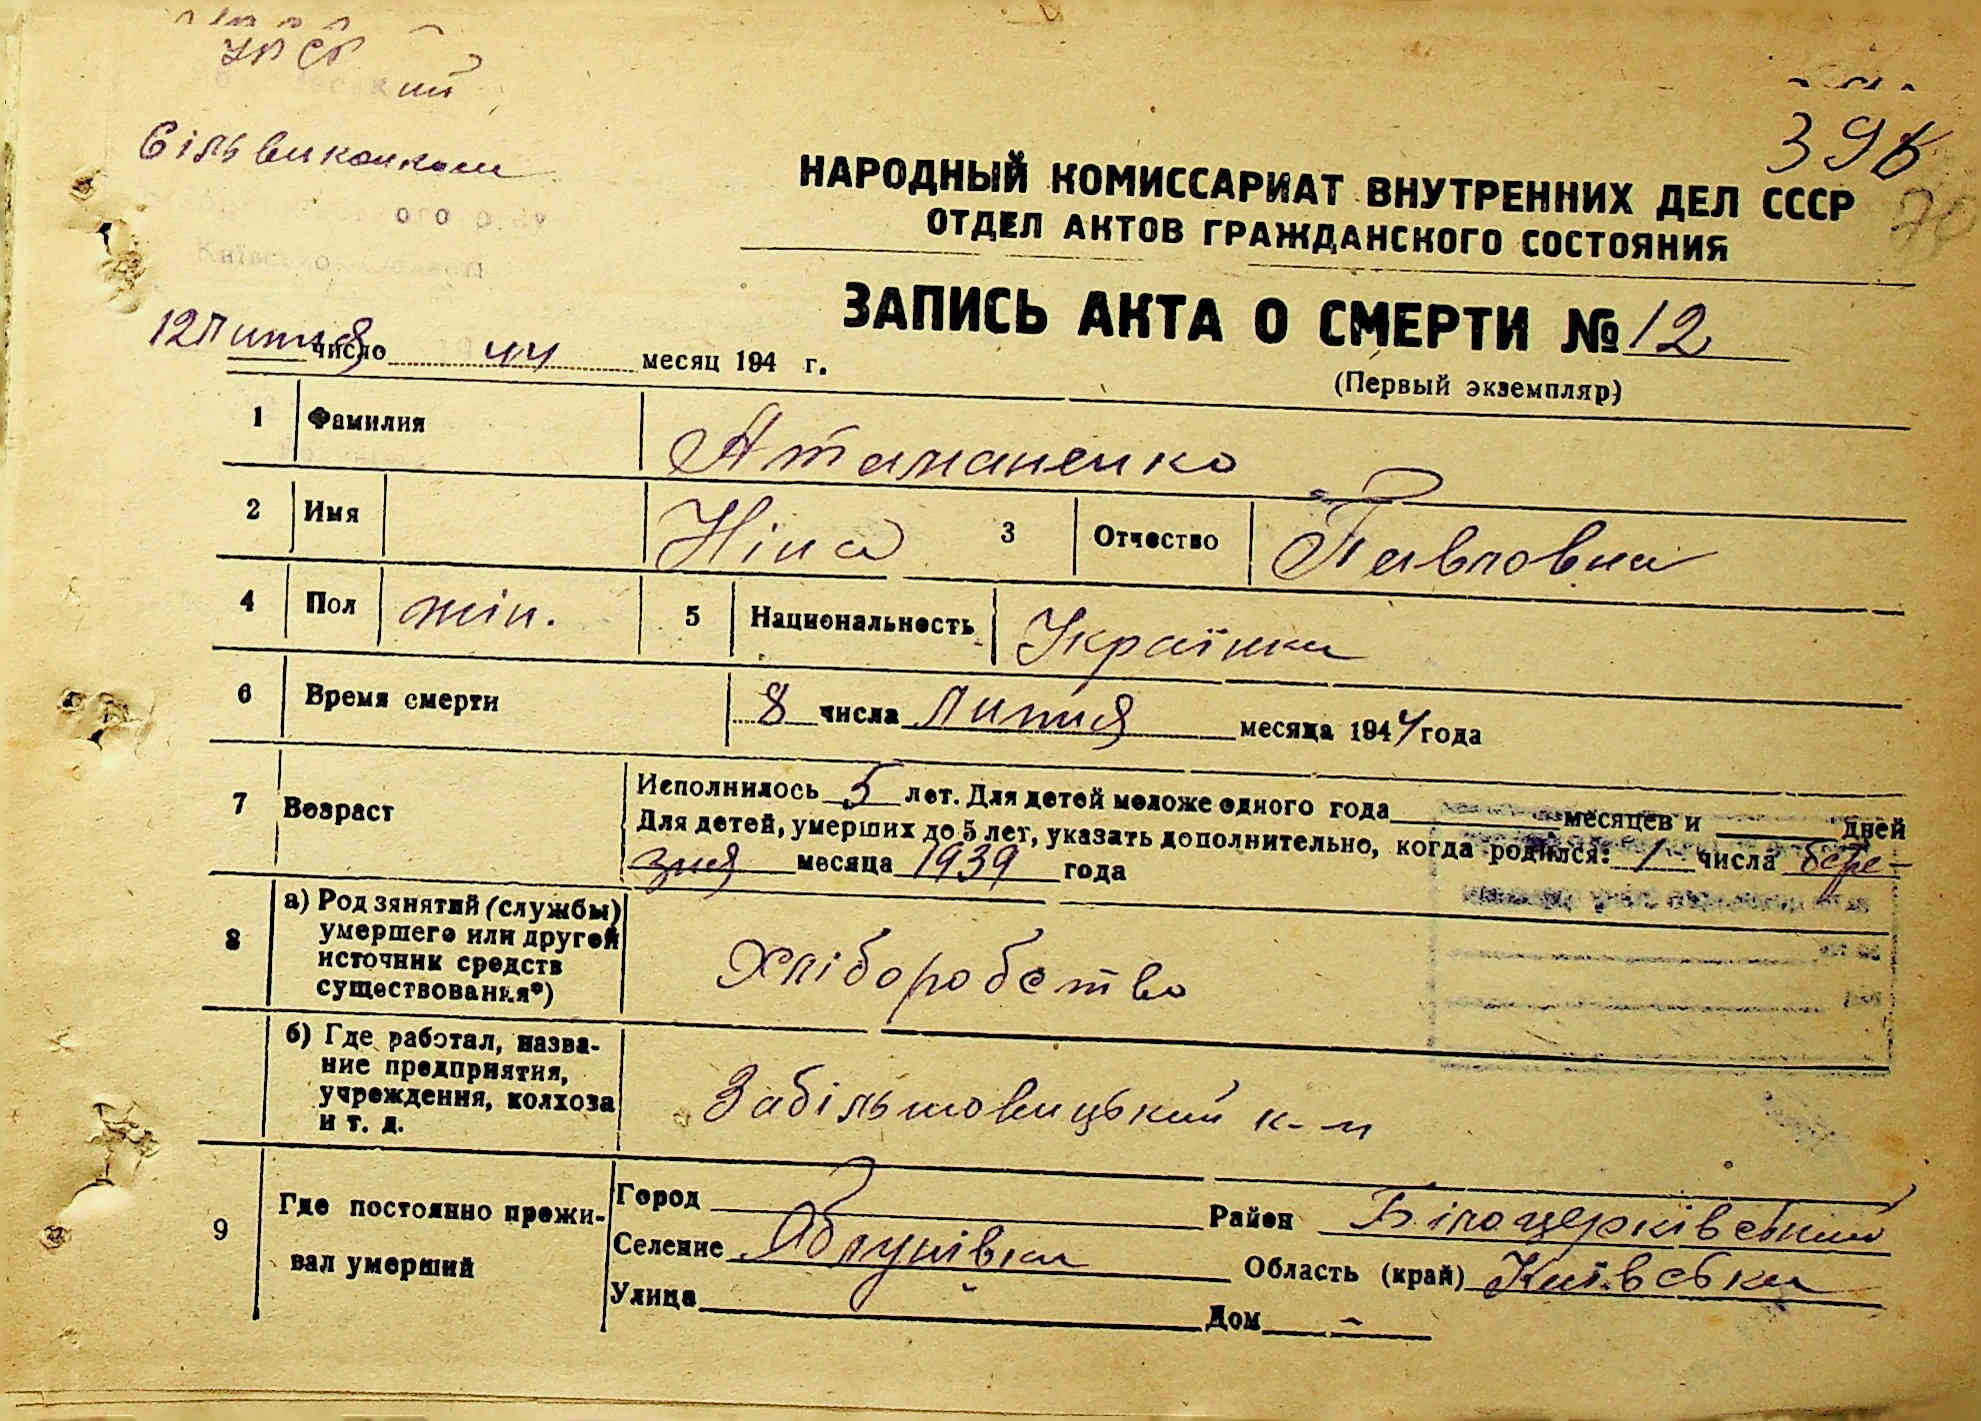 УРСР
ий
Сільвиконком
ого р-ну
Київсько області
396
20
НАРОДНЫЙ КОМИССАРИАТ ВНУТРЕННИХ ДЕЛ СССР
ОТДЕЛ АКТОВ ГРАЖДАНСКОГО СОСТОЯНИЯ
ЗАПИСЬ АКТА О СМЕРТИ № 12
(Первый экземпляр)
12 Липня число 44 месяц 194 г.
1 Фамилия Атаманенко
2 Имя Ніна 3 Отчество Павловна
4 Пол жін. 5 Национальность Українка
6 Время смерти 8 числа Липня месяца 1944 года
7 Возраст Исполнилось 5 лет. Для детей моложе одного года месяцев и дней
Для детей, умерших до 5 лет, указать дополнительно, когда родился: 1 числа бере-
зня месяца 1939 года
8 а) Род занятий (службы)
умершего или другой
источник средств
существования*)
Хліборобство
б) Где работал, назва-
ние предприятия,
учреждения, колхоза
и т. д.
Забільшовицький к-п
9 Где постоянно прожи-
вал умерший
Город Район Білоцерківський
Селение Яблунівка Область (край) Київська
Улица Дом -